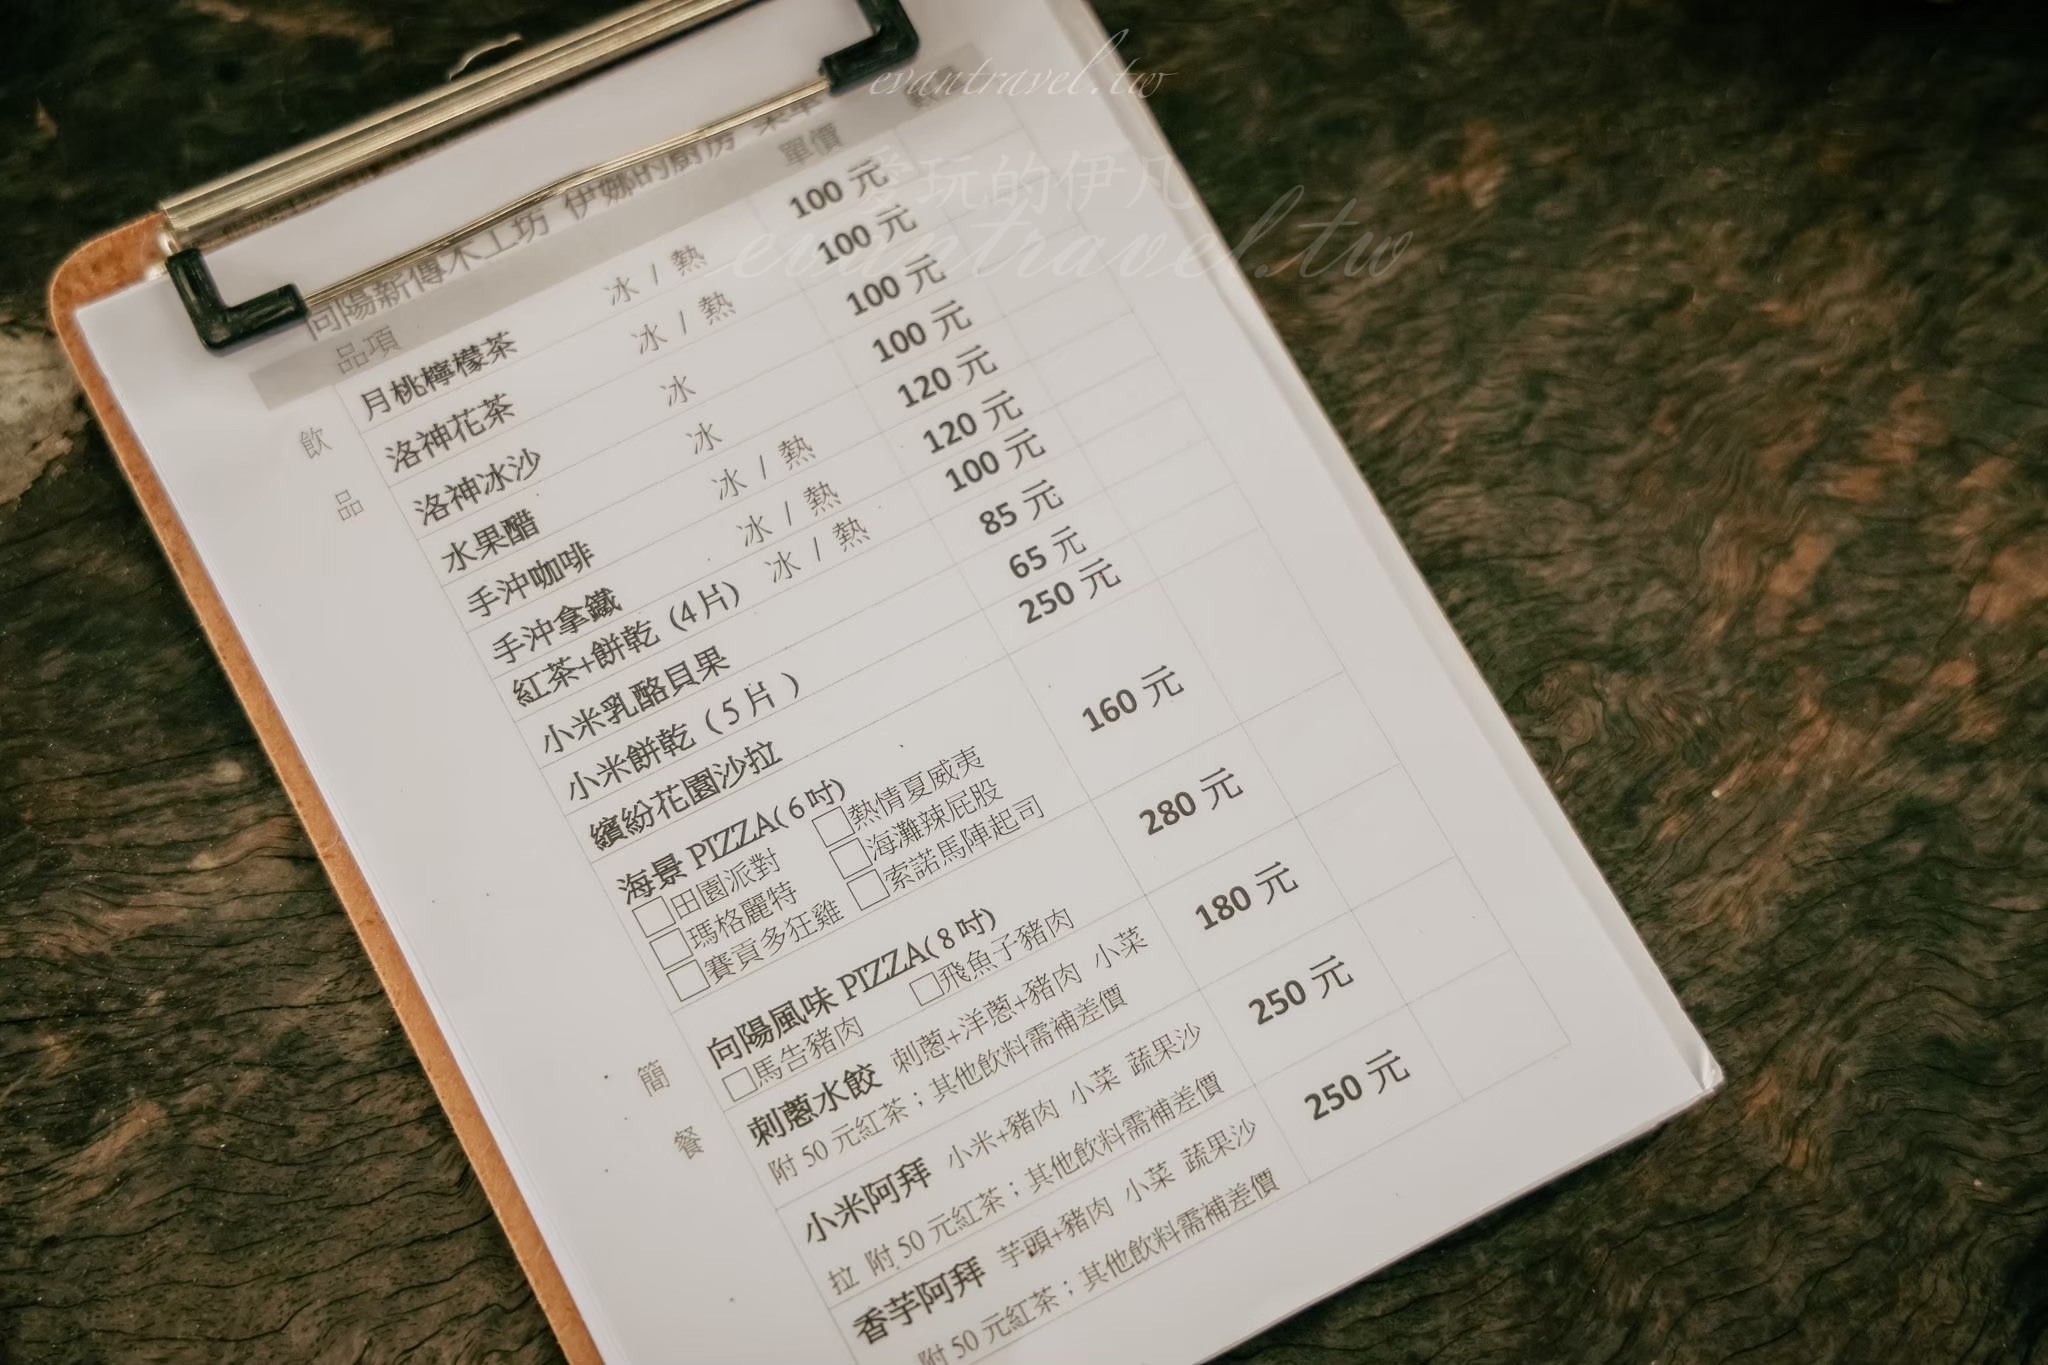 evantravel.tw
愛玩的伊凡
evantravel.tw
向陽新傳木工坊 伊娜的廚房 菜單
品項 單價 數量
飲品
月桃檸檬茶 冰 / 熱 100 元
洛神花茶 冰 / 熱 100 元
洛神冰沙 冰 100 元
水果醋 冰 100 元
手沖咖啡 冰 / 熱 120 元
手沖拿鐵 冰 / 熱 120 元
紅茶+餅乾 (4 片) 冰 / 熱 100 元
簡餐
小米乳酪貝果 85 元
小米餅乾 ( 5 片 ) 65 元
繽紛花園沙拉 250 元
海景 PIZZA( 6 吋) 160 元
□田園派對 □熱情夏威夷
□瑪格麗特 □海灘辣屁股
□賽貢多狂雞 □索諾馬陣起司
向陽風味 PIZZA( 8 吋) 280 元
□馬告豬肉 □飛魚子豬肉
刺蔥水餃 刺蔥+洋蔥+豬肉 小菜 180 元
附 50 元紅茶；其他飲料需補差價
小米阿拜 小米+豬肉 小菜 蔬果沙 250 元
拉 附 50 元紅茶；其他飲料需補差價
香芋阿拜 芋頭+豬肉 小菜 蔬果沙 250 元
附 50 元紅茶；其他飲料需補差價